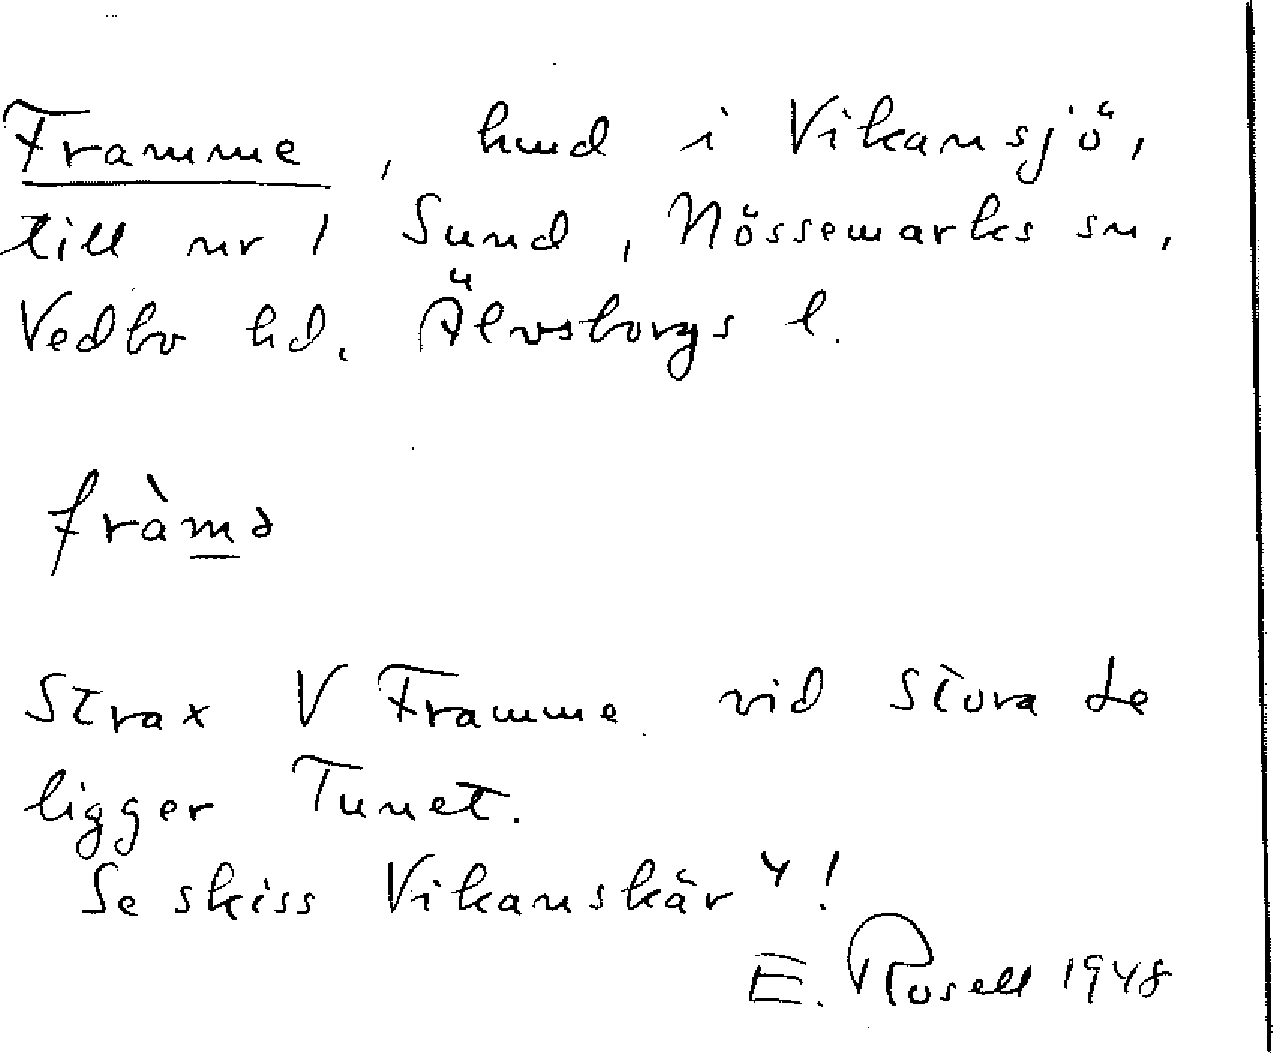 Framme, hmd i Vikansjö,
till nr 1 Sund, Nössemarks sn,
Vedbo hd. Älvsborgs l.
fràmə
Strax V Framme vid Stora Le
ligger Tunet.
Se skiss Vikanskär 4!
E. Rosell 1948